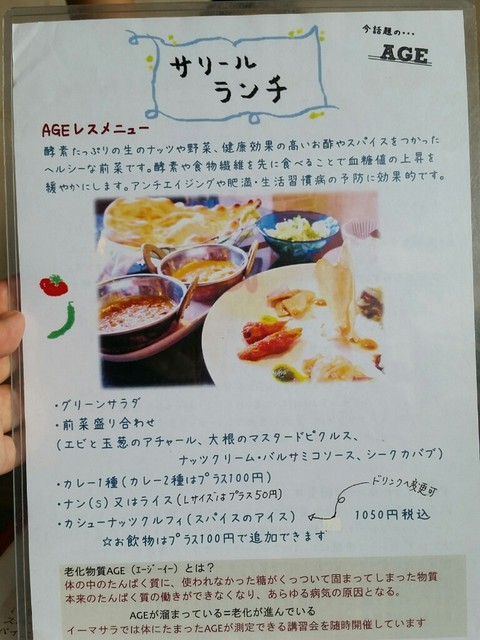 今話題の・・・
AGE
サリール
ランチ
AGEレスメニュー
酵素たっぷりの生のナッツや野菜、健康効果の高いお酢やスパイスをつかった
ヘルシーな前菜です。酵素や食物繊維を先に食べることで血糖値の上昇を
緩やかにします。アンチエイジングや肥満・生活習慣病の予防に効果的です。
・グリーンサラダ
・前菜盛り合わせ
(エビと玉葱のアチャール、大根のマスタードピクルス、
ナッツクリーム・バルサミコソース、シークカバブ)
・カレー1種(カレー2種はプラス100円)
・ナン(S)又はライス(Lサイズはプラス50円)
ドリンクへ変更可
・カシューナッツクルフィ(スパイスのアイス)
1050円税込
☆お飲物はプラス100円で追加できます
老化物質AGE(エージーイー)とは?
体の中のたんぱく質に、使われなかった糖がくっついて固まってしまった物質
本来のたんぱく質の働きができなくなり、あらゆる病気の原因となる。
AGEが溜まっている=老化が進んでいる
イーマサラでは体にたまったAGEが測定できる講習会を随時開催しています